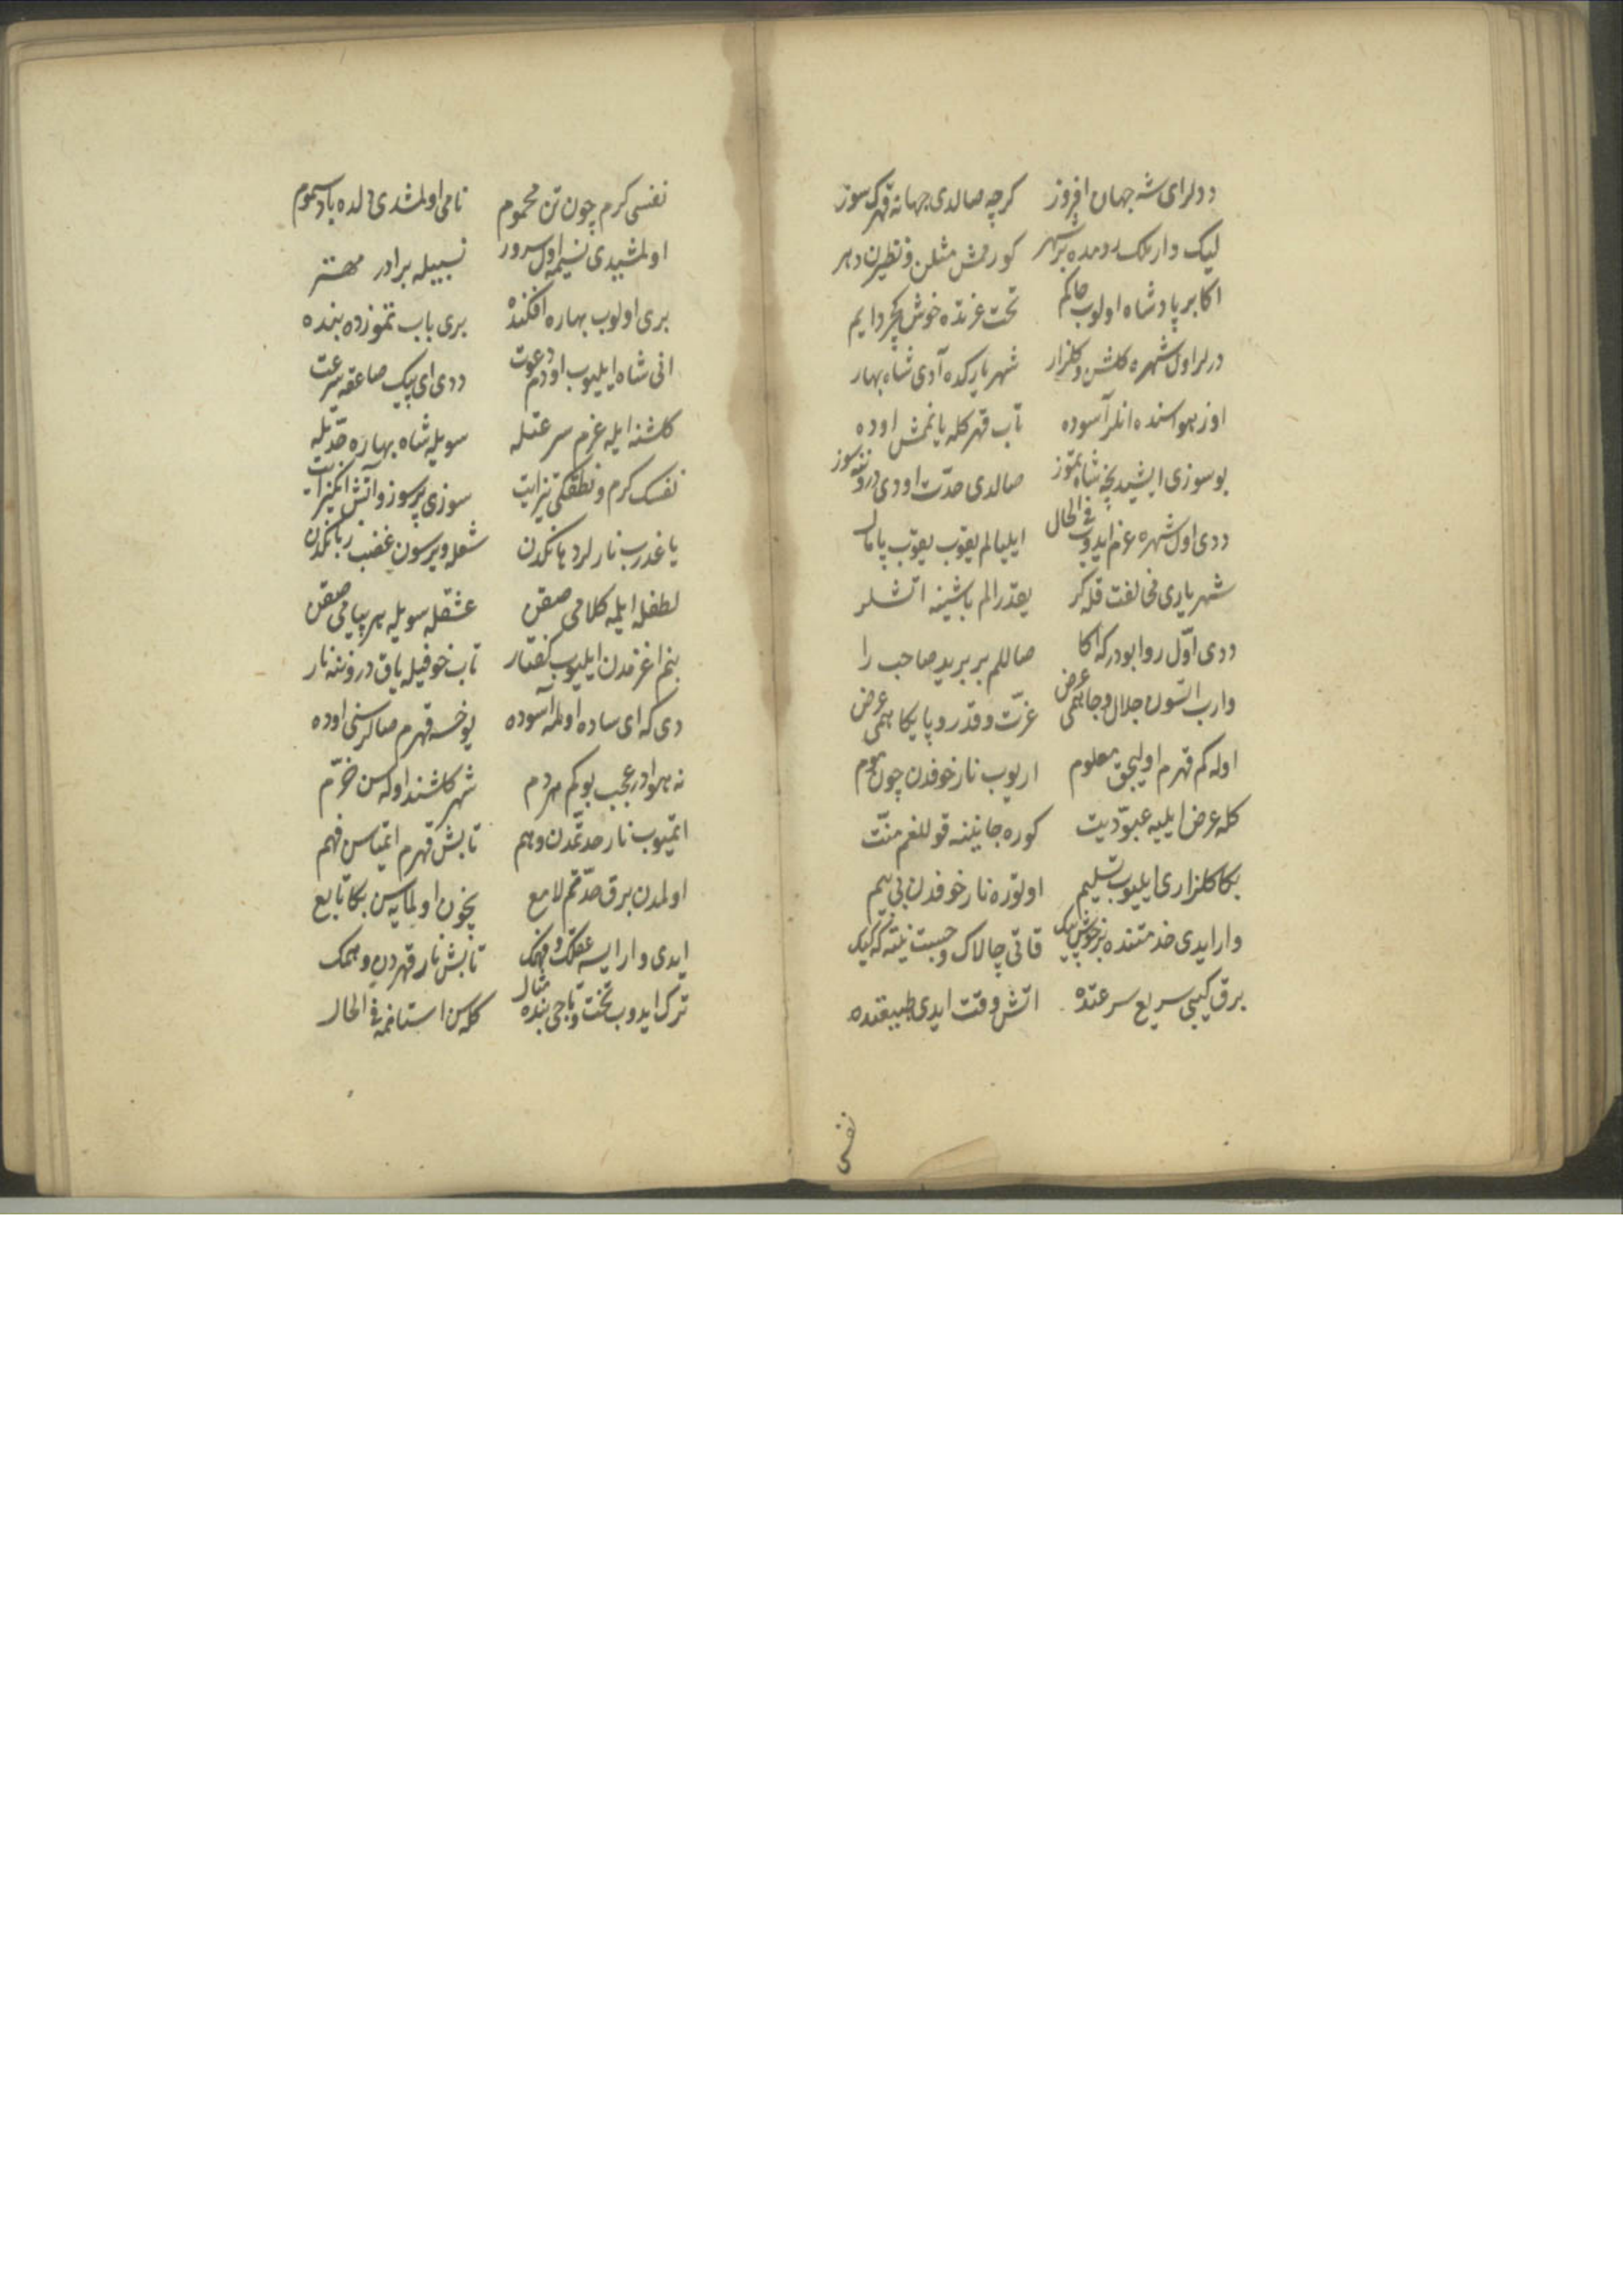 ددلر ای شه جهان افروز کرچه صالدی جهانه قهرک سوز
لیک وار ملک رومده بر شهر کورمش مثلن و نظیرن دهر
اکا بر پادشاه اولوب حاکم تخت عزتده خوش کچر دایم
درلر اول شهره کلشن و کلزار شهریارکده آدی شاه بهار
اوز هواسنده انلر آسوده تاب قهرکله یانمش اوده
بو سوزی ایشیدیجه شاه تموز صالدی حدت اودی دروننه سوز
ددی اول شهره عزم ایدوب فی الحال ایلیالم یقوب یقوب پامال
شهریاری مخالفت قله کر یغدرالم باشینه اتشلر
ددی اول روا بودر که اکا صاللم بر برید صاحب را
وارب اتسون جلال و جاهمی عرض عزت و قدر و پایکاهمی عرض
اوله کم قهرم اولیجق معلوم اریوب نار خوفدن چون موم
کله عرض ایلیه عبودیت کوره جانینه قوللغم منت
بکا کلزاری ایلیوب تسلیم اولتوره نار خوفدن بی بیم
وار ایدی خدمتنده بر خوش پیک قاتی چالاک و چست نیته که کیک
برق کیبی سریع سرعتده اتش وقت ایدی طبیعتده
نفسی
نفسی کرم چون تن محموم نامی اولمشدی دلده باد سموم
اولمشیدی نسیمه اول سرور نسبیله برادر مهتر
بری اولوب بهاره افکنده بری باب تموزده بنده
انی شاه ایلیوب اودم دعوت ددی ای پیک صاعقه سرعت
کلشنه ایله عزم سرعتله سویله شاه بهاره حدتله
نفسک کرم و نطقکی تیز ایت سوزی پر سوز و آتش انکیز ایت
یاغدرب نارلر دهانکدن شعله ویرسون غضب زبانکدن
لطفله ایلمه کلامی صقن عشقله سویله هر پیامی صقن
بنم اغزمدن ایلیوب کفتار تاب خوفیله یاق دروننه نار
دی که ای ساده اولمه آسوده یوخسه قهرم صالر سنی اوده
نه هوادر عجب بو کم هر دم شهر کلشنده اوله سن خرم
اتمیوب نار حدتمدن وهم تابش قهرم اتمیاسن فهم
اولمدن برق حدتم لامع نچون اولمایه سن بکا تابع
ایدی وار ایسه عقلک و فهمک تابش نار قهردن وهمک
ترک ایدوب تخت و تاجی بنده مثال کله سن استانمه فی الحال